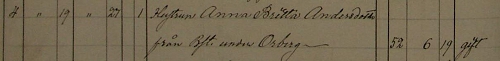 4 " 19 " 27 1 Hustrun Anna Britta Andersdott
från Bst. under Orberg 52 6 19 gift